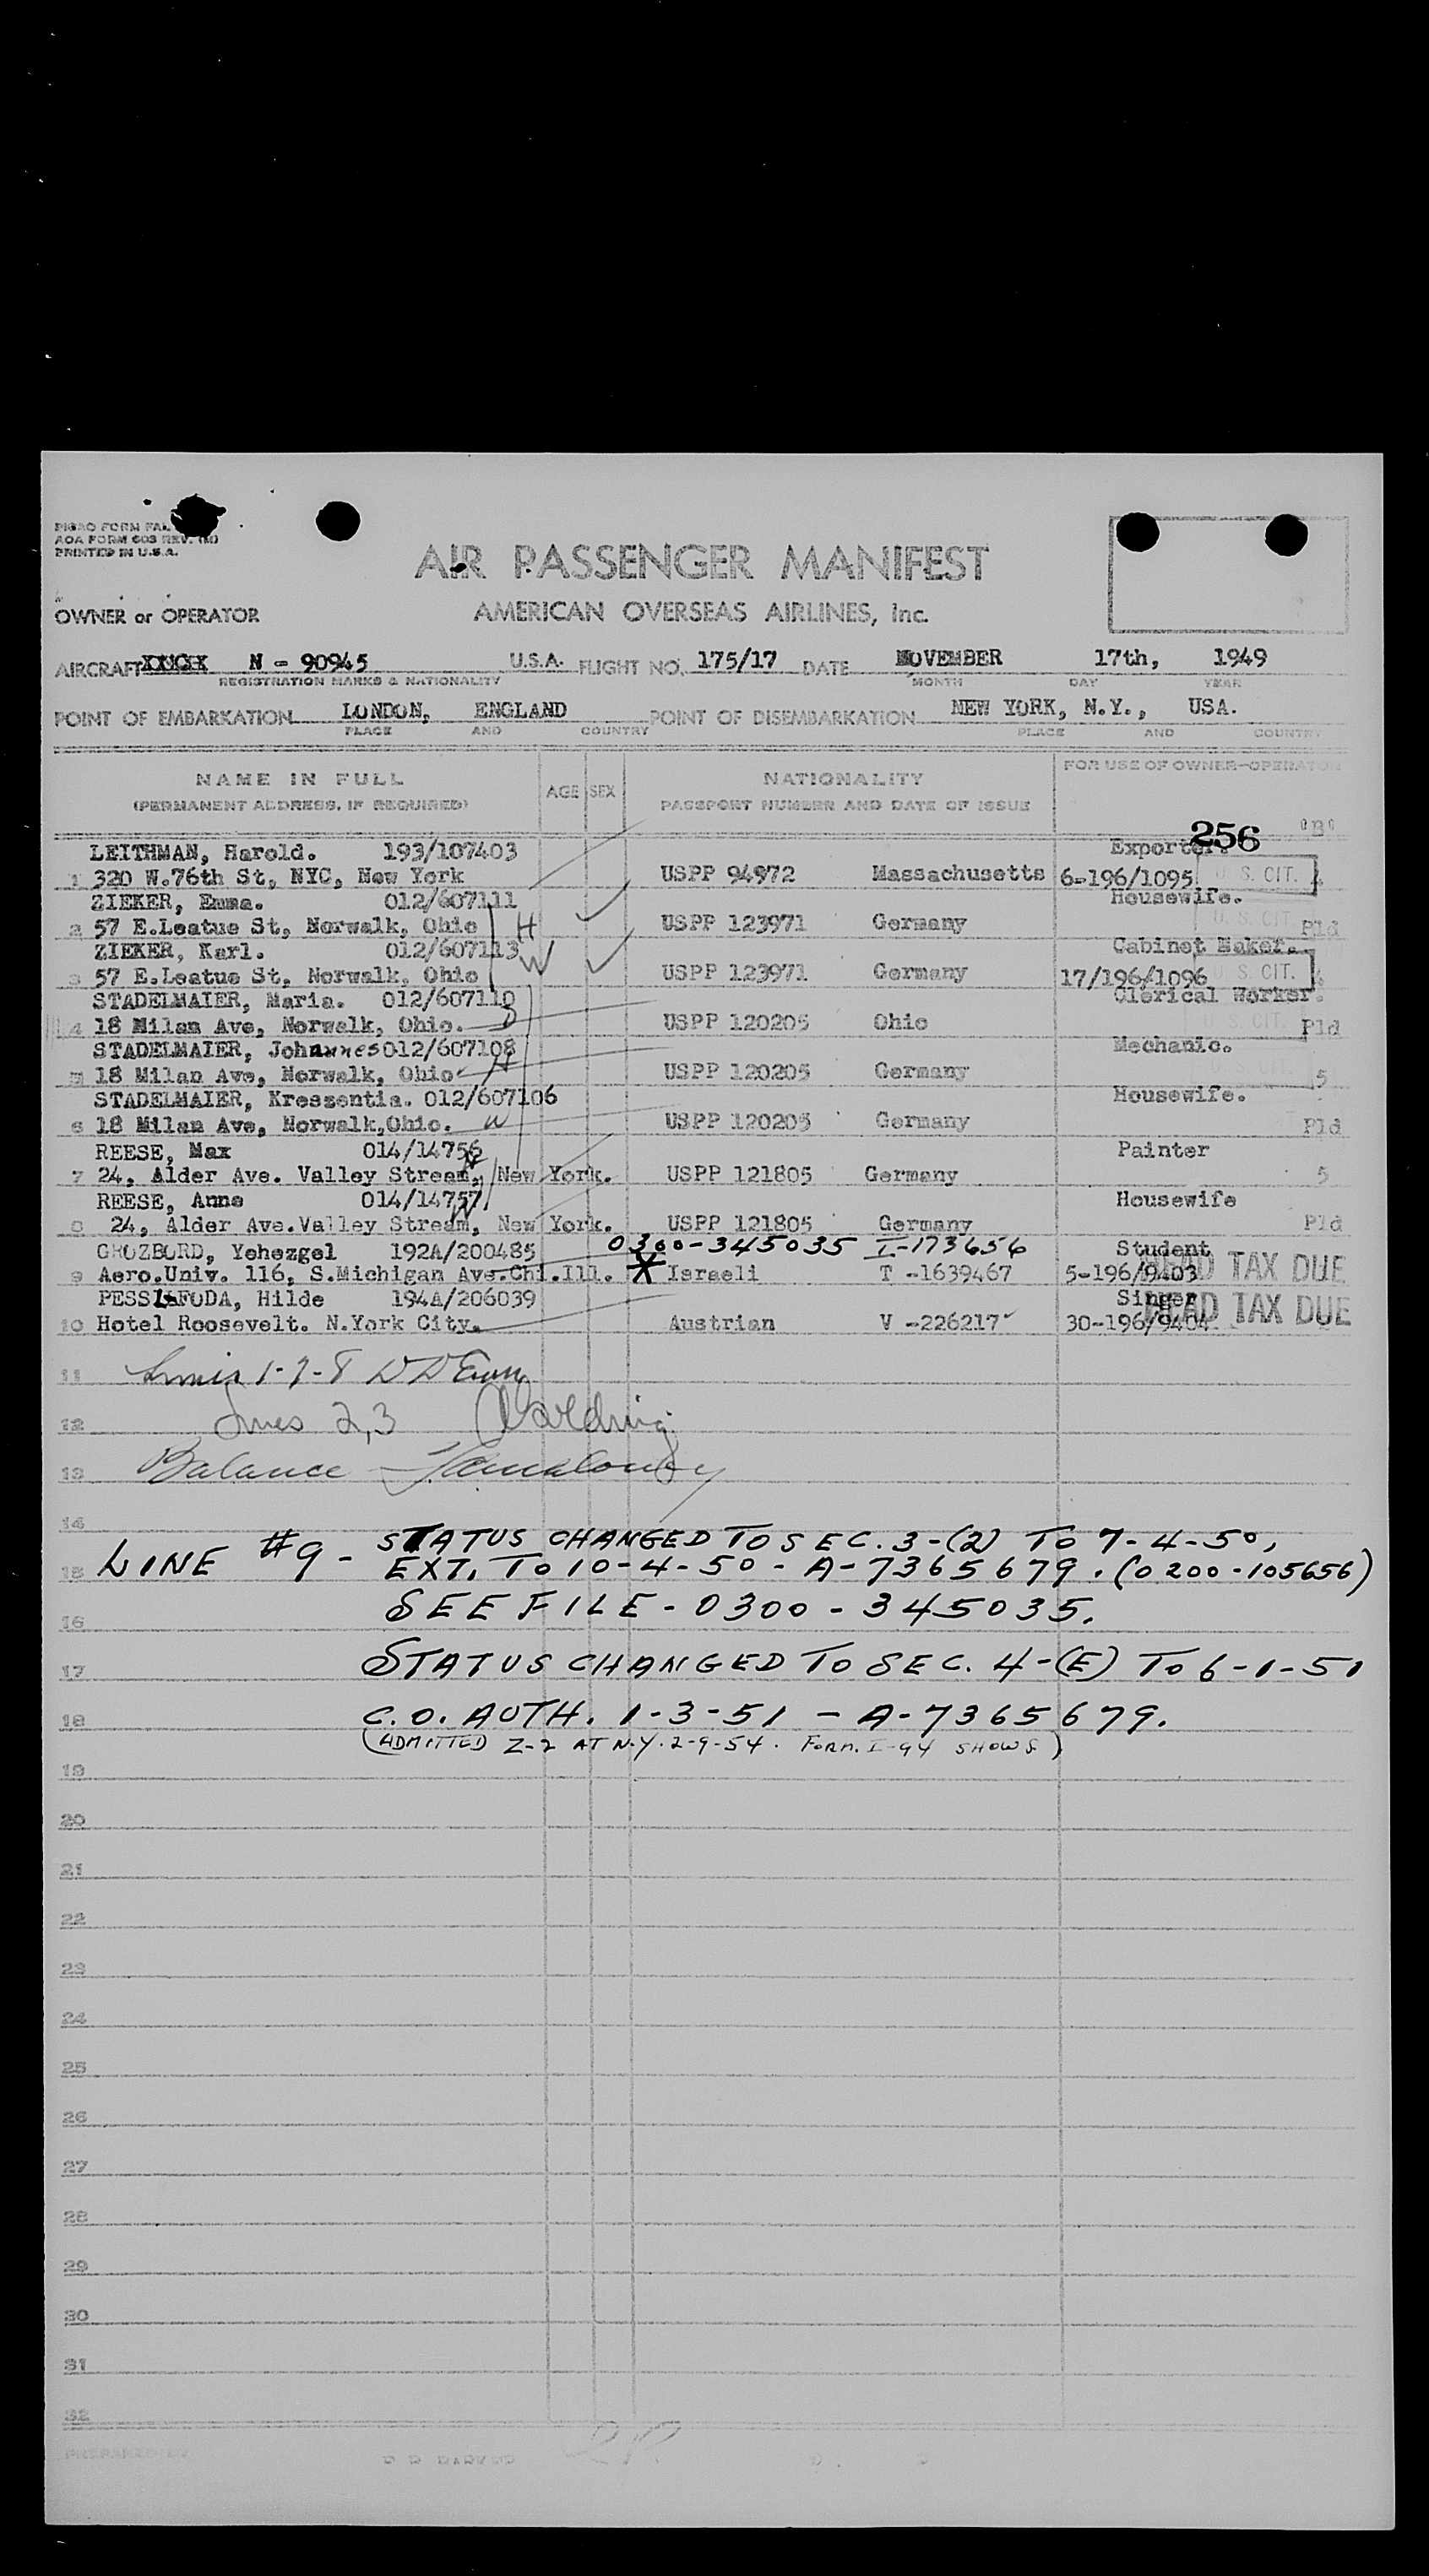 AOA FORM 603 REV.
PRINTED IN U.S.A.
AIR PASSENGER MANIFEST
OWNER or OPERATOR AMERICAN OVERSEAS AIRLINES, Inc.
AIRCRAFT N - 90945 U.S.A. FLIGHT NO. 175/17 DATE NOVEMBER 17th, 1949
REGISTRATION MARKS & NATIONALITY MONTH DAY YEAR
POINT OF EMBARKATION LONDON, ENGLAND POINT OF DISEMBARKATION NEW YORK, N.Y., USA.
PLACE AND COUNTRY PLACE AND COUNTRY
NAME IN FULL AGE SEX NATIONALITY FOR USE OF OWNER-OPERATOR
(PERMANENT ADDRESS, IF REQUIRED) PASSPORT NUMBER AND DATE OF ISSUE
256 "B"
LEITHMAN, Harold. 193/107403 Exporter.
1 320 W.76th St, NYC, New York USPP 94972 Massachusetts 6-196/1095 U. S. CIT. 4
ZIEKER, Emma. 012/607111 Housewife.
2 57 E.Leatue St, Norwalk, Ohio H USPP 123971 Germany U. S. CIT. Pld
ZIEKER, Karl. 012/607113 Cabinet Maker.
3 57 E.Leatue St, Norwalk, Ohio W USPP 123971 Germany 17/196/1096 U. S. CIT. 4
STADELMAIER, Maria. 012/607110 Clerical Worker.
4 18 Milan Ave, Norwalk, Ohio. D USPP 120205 Ohio CIT. Pld
STADELMAIER, Johannes 012/607108 Mechanic.
5 18 Milan Ave, Norwalk, Ohio H USPP 120205 Germany 5
STADELMAIER, Kressentia. 012/607106 Housewife.
6 18 Milan Ave, Norwalk,Ohio. W USPP 120205 Germany Pld
REESE, Max 014/14756 Painter
7 24, Alder Ave. Valley Stream, New York. USPP 121805 Germany 5
REESE, Anna 014/14757 Housewife
8 24, Alder Ave.Valley Stream, New York. USPP 121805 Germany Pld
GROZBORD, Yehezgel 192A/200485 0300-345035 I-173656 Student
9 Aero.Univ. 116, S.Michigan Ave.Chi.Ill. * Israeli T -1639467 5-196/9403 HEAD TAX DUE
PESSL-FODA, Hilde 194A/206039 Singer
10 Hotel Roosevelt. N.York City. Austrian V -226217 30-196/9404 HEAD TAX DUE
11
12 Lines 2,3
13 Balance
14
LINE #9 - STATUS CHANGED TO SEC. 3-(2) TO 7-4-50,
15 EXT. TO 10-4-50 - A-7365679. (0200-105656)
16 SEE FILE - 0300-345035.
17 STATUS CHANGED TO SEC. 4-(E) TO 6-1-51
18 C.O. AUTH. 1-3-51 - A-7365679.
(ADMITTED Z-2 AT N.Y. 2-9-54. FORM. I-94 SHOWS)
19
20
21
22
23
24
25
26
27
28
29
30
31
32
PREPARED BY